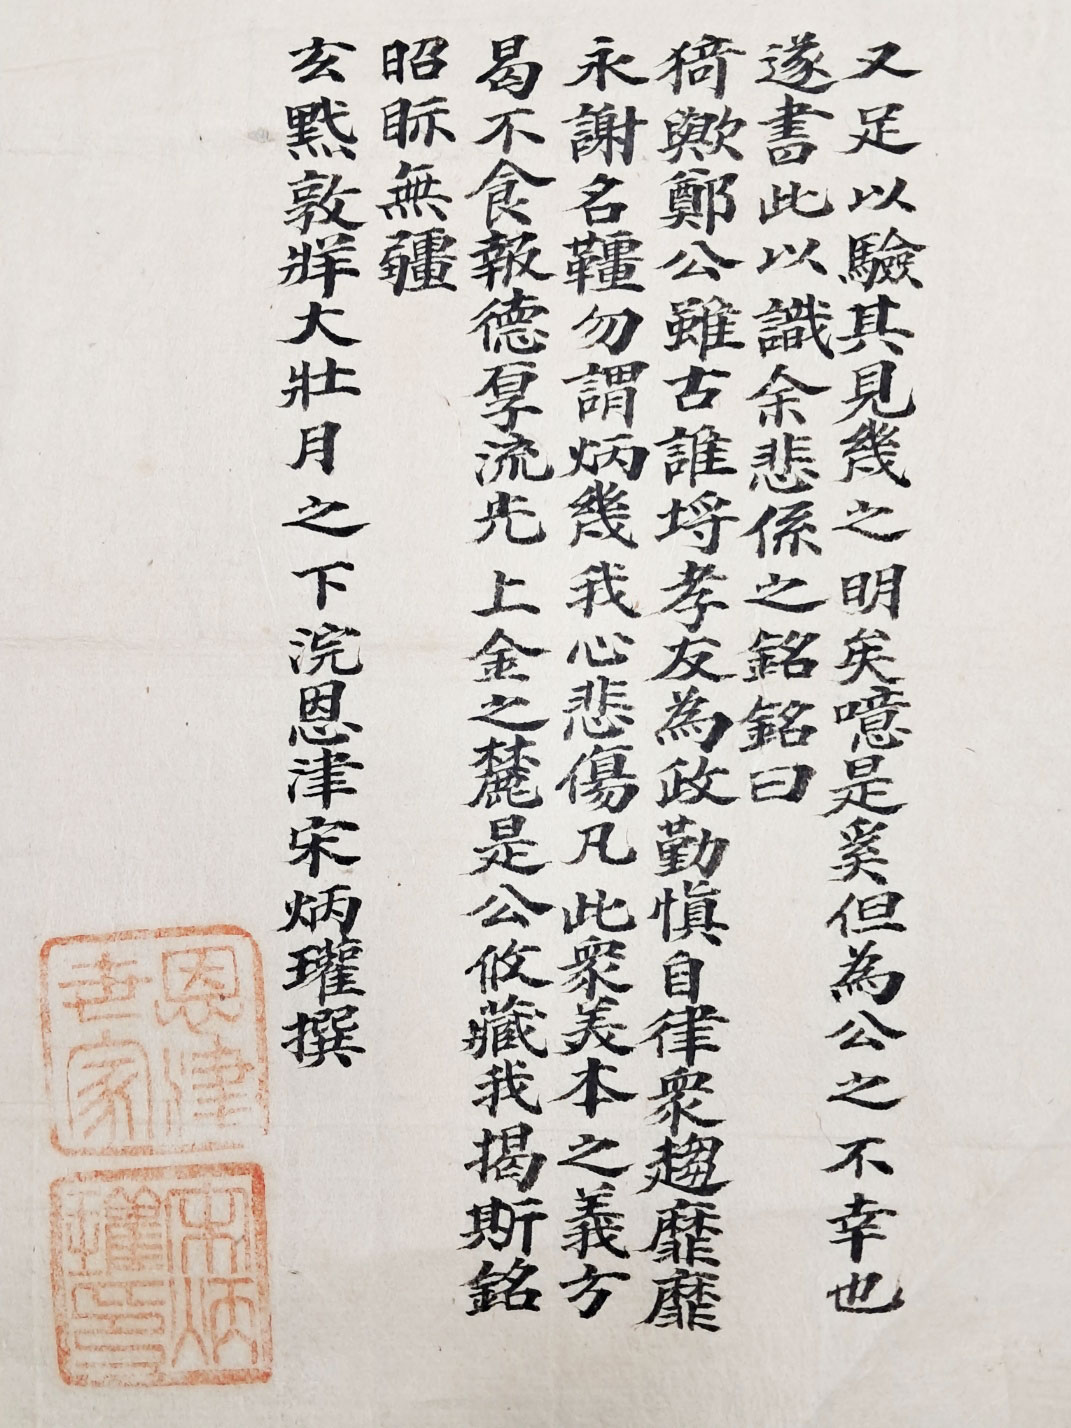 又足以驗其見幾之明矣噫是奚但為公之不幸也
遂書此以識余悲係之銘銘曰
猗歟鄭公雖古誰埒孝友為政勤愼自律衆趨靡靡
永謝名韁勿謂炳幾我心悲傷凡此衆美本之義方
曷不食報德厚流光上金之麓是公攸藏我揭斯銘
昭眎無疆
玄黓敦牂大壯月之下浣恩津宋炳瓘撰
恩津世家
宋炳瓘印